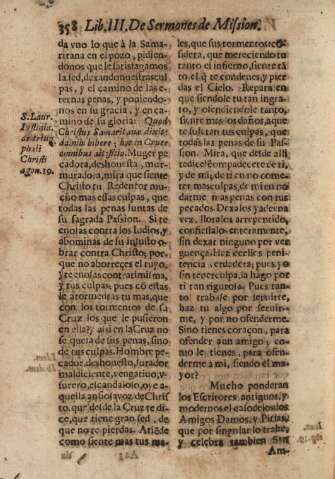 358 Lib. III. De Sermones de Mission.
da vno lo que à la Sama-
ritana en el pozo, pidien-
donos que le satisfagamos
la sed, dexando nuestras cul-
pas, y el camino de las e-
ternas penas, y poniendo-
nos en su gracia, y en ca-
mino de su gloria: Quod
Christus Samaritanæ dixit:
da mihi bibere; hoc in Cruce
omnibus ait sitio. Muger pe-
cadora, deshonesta, mur-
muradora, mira que siente
Christo tu Redentor mu-
cho mas essas culpas, que
todas las penas juntas de
su sagrada Passion. Si te
enojas contra los Iudios, y
abominas de su injusto o-
brar contra Christo; por-
que no aborreces el tuyo,
y te enojas contra ti misma,
y tus culpas, pues có estas
le atormentas tu mas, que
con los tormentos de su
Cruz los que le pusieron
en ella? y assi en la Cruz no
se quexa de sus penas, sino
de tus culpas. Hombre pe-
cador, deshonesto, jurador
maldiciente, vengativo, y
furero, escandaloso, oye a-
quella ansiosa voz de Chris-
to, que desde la Cruz te di-
ce, que tiene gran sed, de
no te pierdas. Atiẽde
como siente mas tus ma-
S. Laur.
Iustinia.
de trium
phali
Christi
agon. 19.
les, que sus tormentos: cõ-
sidera, que mereciendo tu
tanto el infierno, siente tã-
to, el q te condenes, y pier-
das el Cielo. Repara en
que siendole tu tan ingra-
to, y ofendiendole tanto,
siente mas los daños, a que
te sujetan tus culpas, que
todas las penas de su Pas-
sion. Mira, que desde alli
te dice: Compadecete de ti,
y de mi, de ti en no come-
ter mas culpas, de mi en no
darme mas penas con tus
pecados. Dexalos ya de vna
vez, lloralos arrepentido,
confiessalos enteramente,
sin dexar ninguno por ver
guença. Haz de ellos peni-
tencia verdadera; pues yo
sin tener culpa, la hago por
ti tan rigurosa. Pues tan-
to trabaje por servirte,
haz tu algo por servir-
me, y por no ofenderme.
Sino tienes coraçon, para
ofender à un amigo, co-
mo le tienes, para ofen-
derme à mi, siendo el ma-
yor?
Mucho ponderan
los Escritores antiguos, y
modernos el caso de los dos
Amigos Damon, y Pitias,
que por singular lo trahe,
y celebra tambien San
Am-